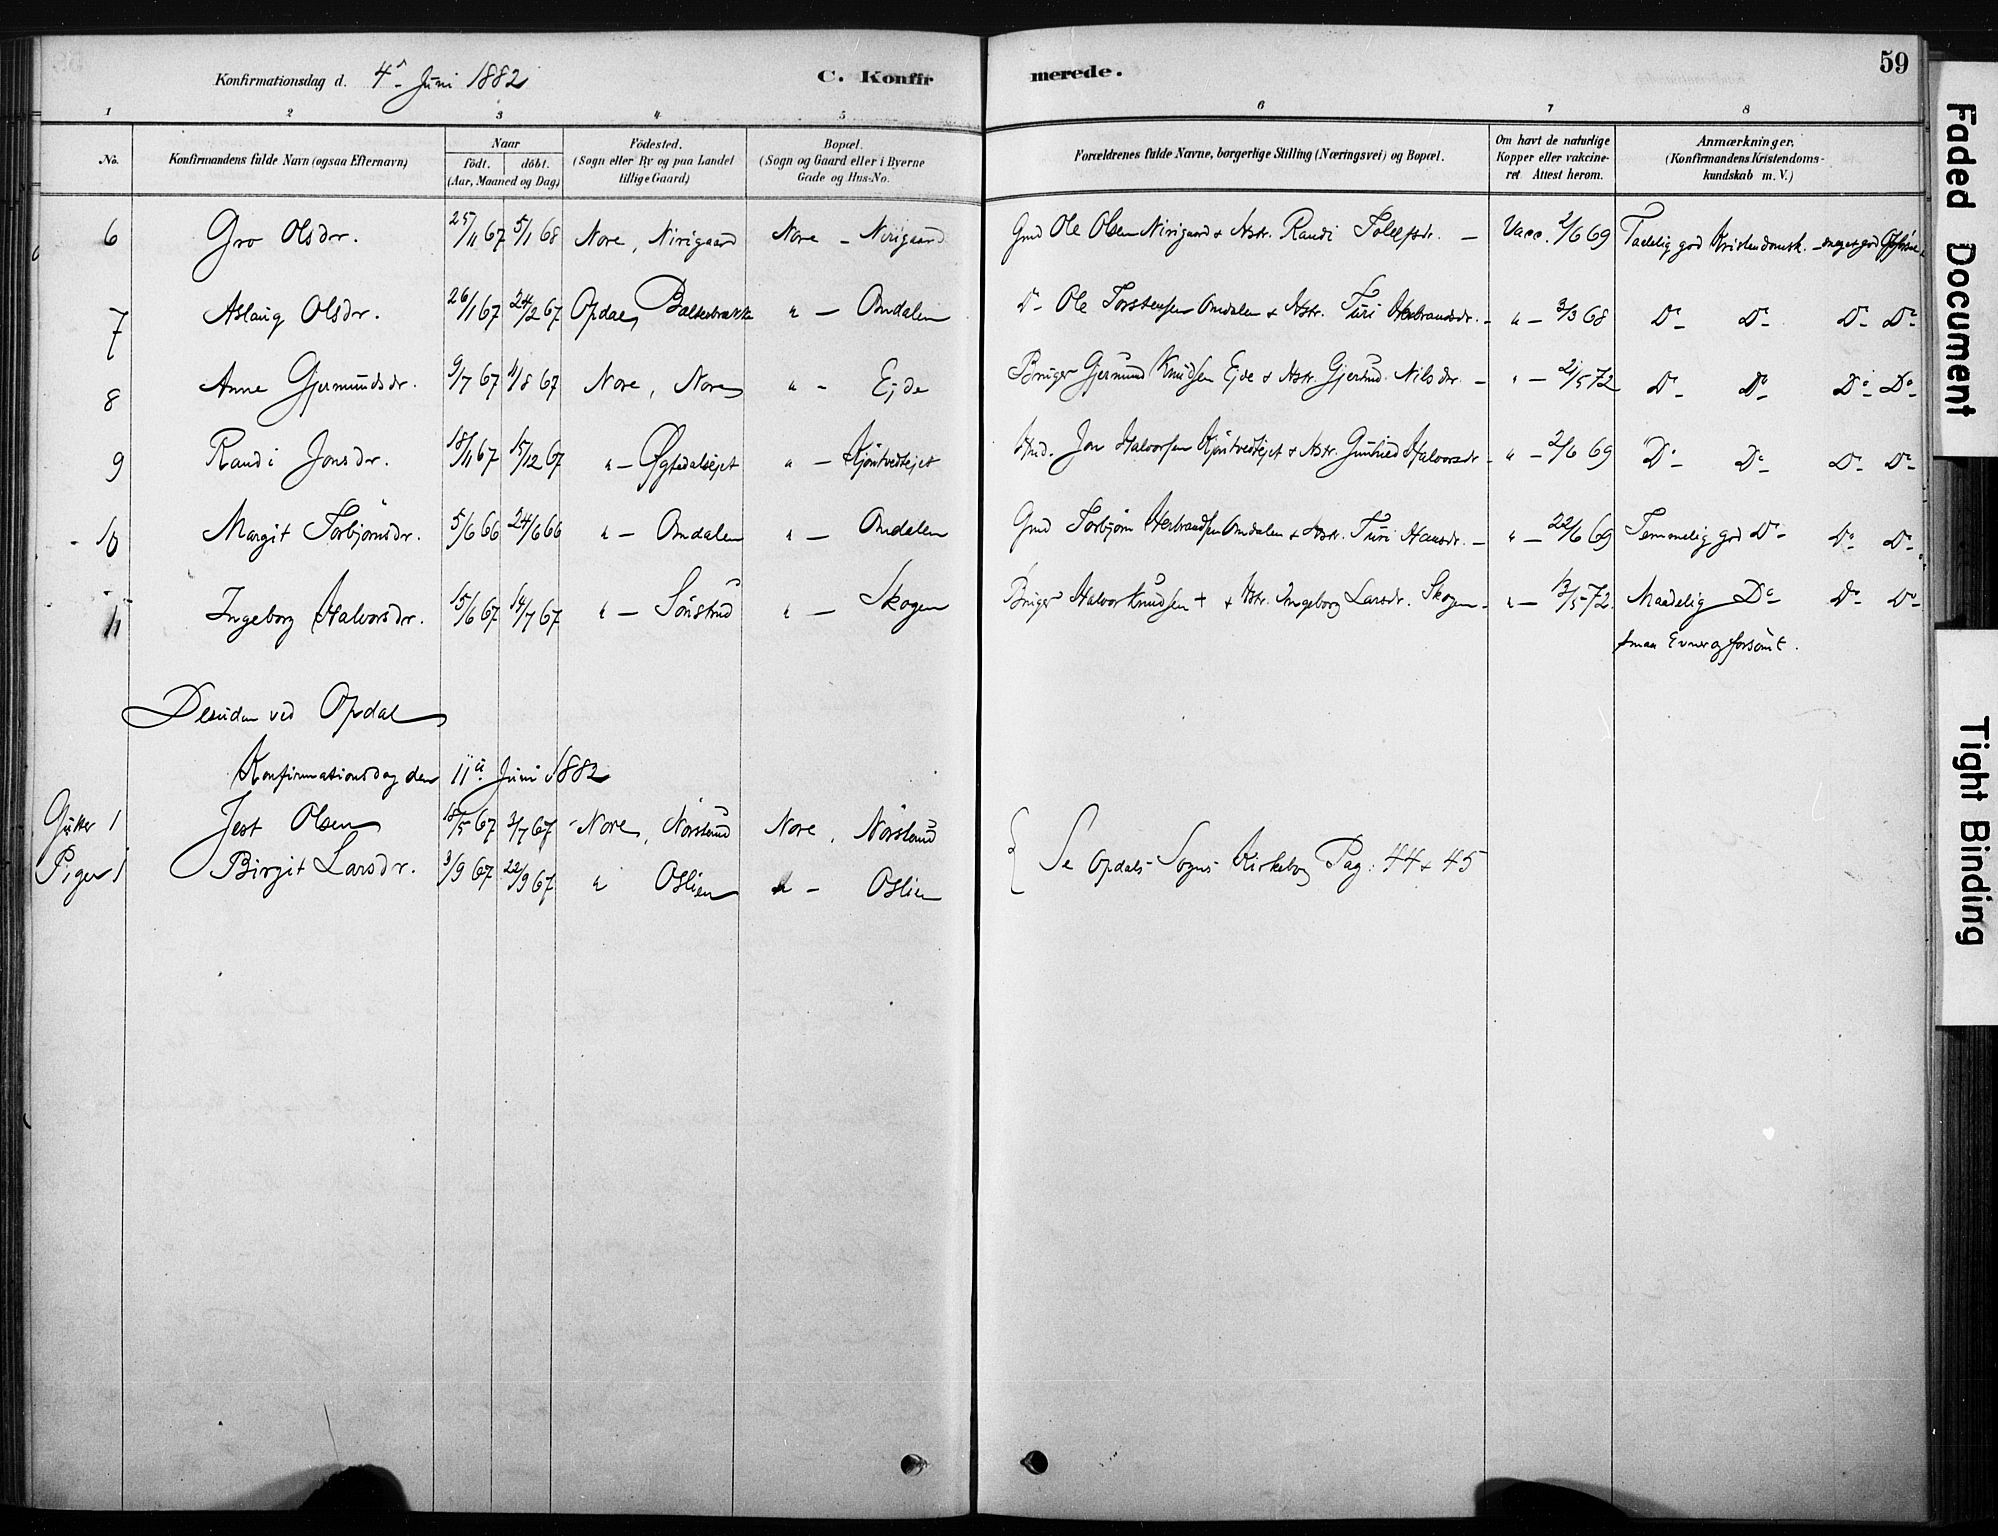 59
Konfirmationsdag d. 4de Juni 1882 C. Konfirmerede.
1 2 3 4 5 6 7 8
No. Konfirmandens fulde Navn (ogsaa Efternavn) Naar født. døbt. (Aar, Maaned og Dag) Fødested. (Sogn eller By og paa Landet tillige Gaard) Bopæl. (Sogn og Gaard eller i Byerne Gade og Hus-No. Forældrenes fulde Navne, borgerlige Stilling (Næringsvei) og Bopæl. Om havt de naturlige Kopper eller vakcineret. Attest herom. Anmærkninger. (Konfirmandens Kristendomskundskab m. V.)
6 Gro Olsdr. 25/11 67 5/1 68 Nore, Nirigaard Nore - Nirigaard Gmd Ole Olsen Nirigaard & Hstr. Randi Tolefsdr. - Vacc. 2/6 69 Tadelig god Kristendomsk. - meget god
7 Aslaug Olsdr. 26/1 67 24/2 67 Opdal, " - Omdalen Do Ole Torstensen Omdalen & Hstr. Turi Herbrandsdr. - " - 3/3 68 Do Do Do Do
8 Anne Gjermundsdr. 9/7 67 11/8 67 Nore, Nore " - Ejde Bruger Gjermund Knudsen Ejde & Hstr. Gjertrud Nilsdr. - " - 21/5 72 Do Do Do Do
9 Randi Jonsdr. 18/11 67 15/12 67 " - Øygsdalsejet " - Kjøntvedtejet Hmd. Jon Halvorsen Kjøntvedtejet & Hstr. Gunhild Halvorsdr - " - 2/6 69 Do Do Do Do
10 Margit Torbjørnsdr. 5/6 66 24/6 66 " - Omdalen " - Omdalen Gmd Torbjørn Herbrandsen Omdalen & Hstr. Turi Hansdr. - " - 22/6 69 Temmelig god Do Do Do
11 Ingeborg Halvorsdr. 15/6 67 14/7 67 " - Sønstrud " - Skogen Bruger Halvor Knudsen + & Hstr. Ingeborg Larsdr. Skogen - " - 13/5 72. Maadelig Do Do Do
smaa Evner og forsømt.
Desuden ved Opdal
Konfirmationsdag den 11te Juni 1882
Gutter 1 Jest Olsen 18/5 67 3/7 67 Nore, Nørstrud Nore, Nørstrud
Piger 1 Birgit Larsdr. 3/9 67 22/9 67 " Oslien " - Oslien
Se Opdals Sogns Kirkebog Pag: 44 & 45
Faded Document
Tight Binding